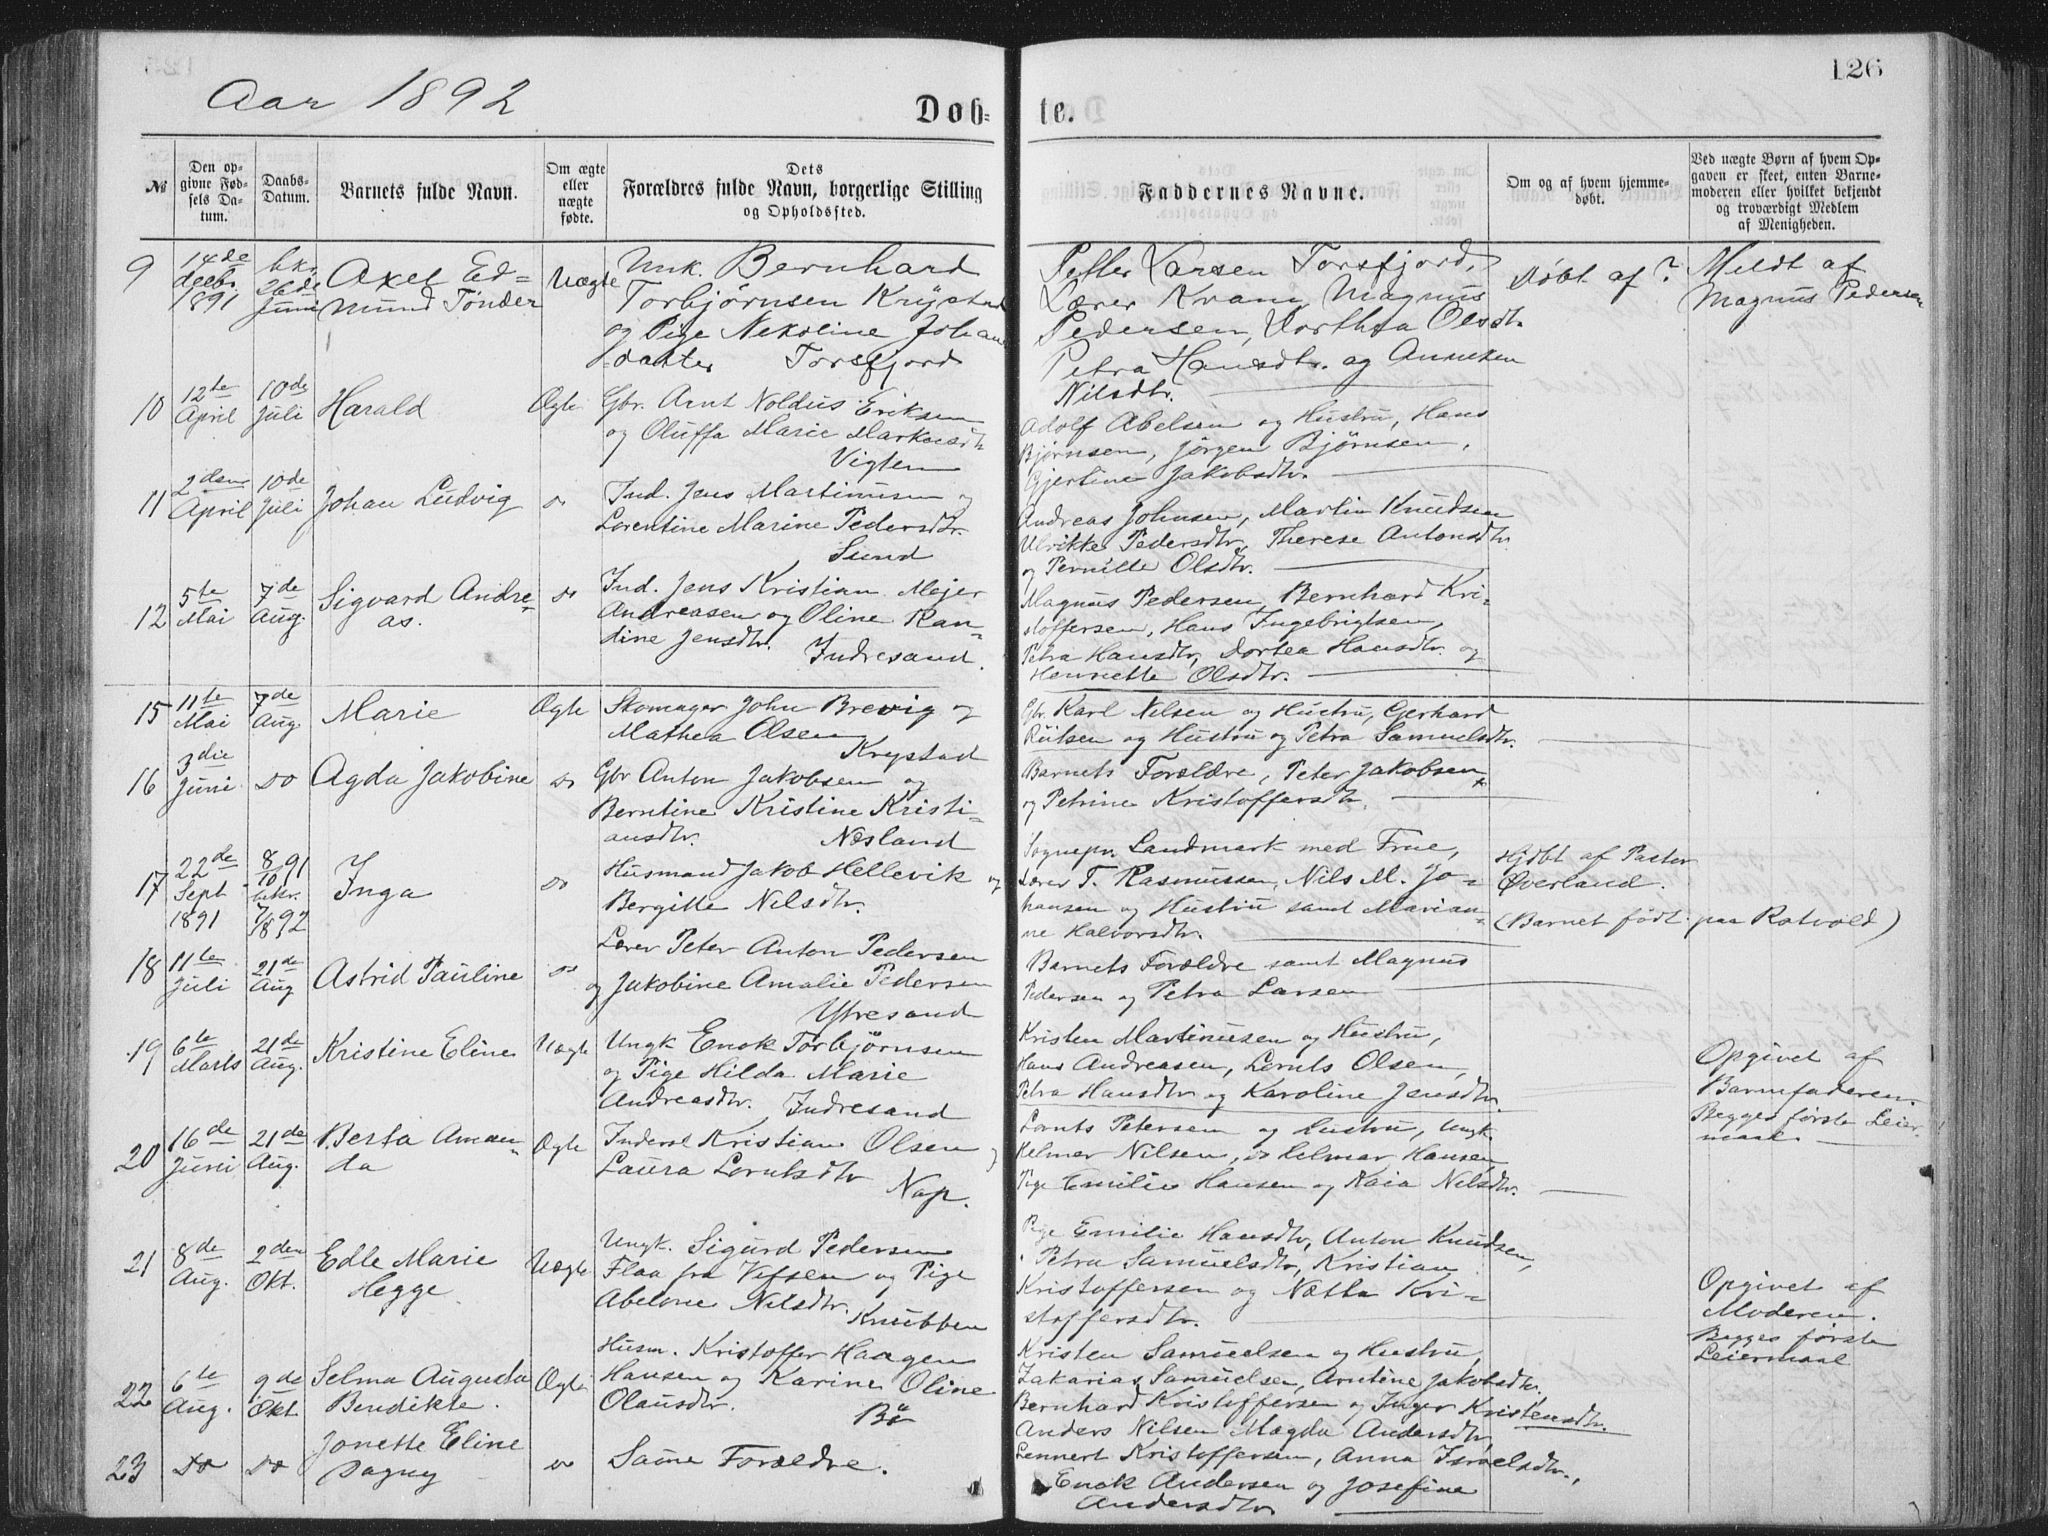 Aar 1892
126
Døb-
te.
№
Den op-
givne Fød-
sels Da-
tum.
Daabs-
Datum.
Barnets fulde Navn.
Om ægte
eller
uægte
fødte.
Dets
Forældres fulde Navn, borgerlige Stilling
og Opholdssted.
Faddernes Navne.
Om og af hvem hjemme-
døbt.
Ved uægte Børn af hvem Op-
gaven er skeet, enten Barne-
moderen eller hvilket bekjendt
og troværdigt Medlem
af Menigheden.
9
14de
decbr.
1891
bkr.
26de
Juni
Axel Ed-
mund Tönder
Uægte
Unk. Bernhard
Torbjørnsen Krystad
og Pige Nekoline Johans
datter Torsfjord
Petter Larsen Torsfjord,
Lærer Kvam, Magnus
Pedersen, Dorthea Olsdtr.
Petra Hansdtr. og Anneken
Nilsdtr.
Døbt af ?
Meldt af
Magnus Pedersen
10
12te
April
10de
Juli
Harald
Ægte
Gbr. Arnt Noldus Eriksen
og Oluffa Marie Markusdtr
Vigten
Adolf Abelsen og Hustru, Hans
Bjørnsen, Jørgen Bjørnsen,
Gjertine Jakobsdtr.
11
2den
April
10de
Juli
Johan Ludvig
do
Ind. Jens Martinusen og
Lorentine Marine Pedersdtr.
Sund
Andreas Johnsen, Martin Knudsen
Ulrikke Pedersdtr, Therese Antonsdtr.
og Pernille Olsdtr.
12
5te
Mai
7de
Aug.
Sigvard Andre-
as.
do
Ind. Jens Kristian Mejer
Andreasen og Oline Ran-
dine Jensdtr.
Indresand.
Magnus Pedersen, Bernhard Kri-
stoffersen, Hans Ingebrigtsen,
Petra Hansdtr, Dortea Hansdtr. og
Henriette Olsdtr.
15
11te
Mai
7de
Aug.
Marie
Ægte
Skomager John Brevig og
Mathea Olsen
Krystad
Gbr. Karl Nilsen og Hustru, Gerhard
Riitsen og Hustru og Petra Samuelsdtr.
16
3die
Juni
Do
Agda Jakobine
do
Gbr Anton Jakobsen og
Berntine Kristine Kristi-
ansdtr. Næsland
Barnets Forældre, Peter Jakobsen
og Petrine Kristoffersdtr.
17
22de
Sept.
1891
8/10 91
bekr.
7/8 92
Inga
do
Husmand Jakob Hellevik og
Bergitte Nilsdtr.
Sognepr. Landmark med Frue,
Lærer T. Rasmussen, Nils M. Jo-
hansen og Hustru samt Marian-
ne Halvorsdtr.
Hjdbt af Pastor
Øverland.
(Barnet født paa Rotvold)
18
11te
Juli
21de
Aug
Astrid Pauline
do
Lærer Peter Anton Pedersen
og Jakobine Amalie Pedersen
Ytresand
Barnets Forældre samt Magnus
Pedersen og Petra Larsen
19
6te
Marts
21de
Aug.
Kristine Eline
Uægte
Ungk Enok Torbjörnsen
og Pige Hilda Marie
Andreasdtr. Indresand
Kristen Martinusen og Hustru,
Hans Andreasen, Lornts Olsen,
Petra Hansdtr og Karoline Jensdtr.
Opgivet af
Barnefaderen.
Begges første Leier-
maal.
20
16de
Juni
21de
Aug.
Berta Aman-
da
Ægte
Inderst Kristian Olsen og
Laura Lorntsdtr
Nap.
Lornts Petersen og Hustru, Ungk.
Helmer Nilsen, do Hilmar Hansen,
Pige Emilie Hansen og Kaia Nilsdtr.
21
8de
Aug.
2den
Okt.
Edle Marie
Hegge
Uægte
Ungk. Sigurd Pedersen
Flaa fra Vefsen og Pige
Abelone Nilsdtr.
Knubben
Pige Emilie Hansdtr, Anton Knudsen,
Petra Samuelsdtr, Kristian
Kristoffersen og Nætta Kri-
stoffersdtr.
Opgivet af
Moderen.
Begges første
Leiermaal
22
6te
Aug.
9de
Okt
Selma Augusta
Bendikte.
Ægte
Husm. Kristoffer Haagen
Hansen og Karine Oline
Olausdtr.
Bø
Kristen Samuelsen og Hustru,
Zakarias Samuelsen, Arntine Jakobsdtr.
Bernhard Kristoffersen og Inger Kristensdtr.
23
Do
Do
Jonette Eline
Dagny
do
Same Forældre.
Anders Nilsen Magda Andersdtr,
Lennert Kristoffersen, Anna Israelsdtr.,
Enok Andersen og Josefine
Andersdtr